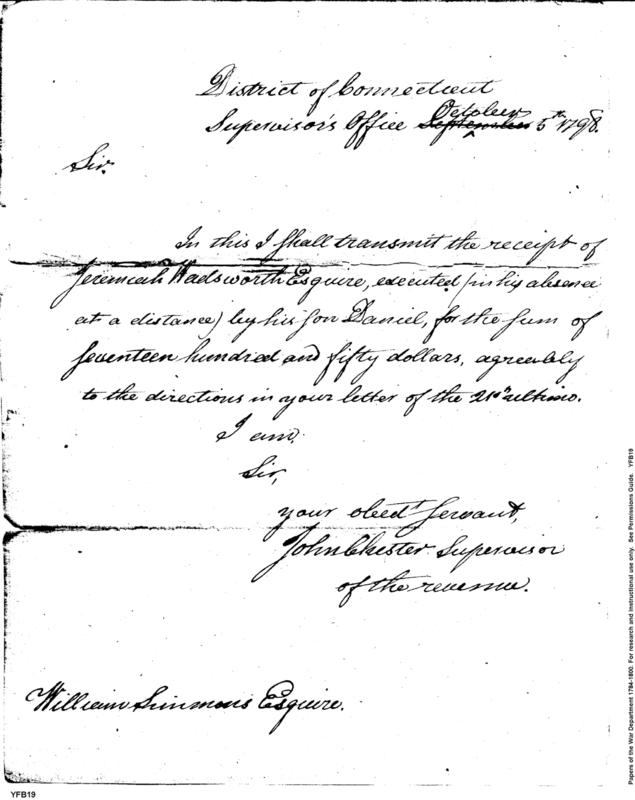 District of Connecticut
October
Supervisor's Office September 5th 1798.
Sir.
In this I shall transmit the receipt of
Jeremiah Wadsworth Esquire, executed (in his absence
at a distance) by his son Daniel, for the sum of
seventeen hundred and fifty dollars, agreeably
to the directions in your letter of the 21st ultimo.
I am.
Sir,
your obedt servant,
John Chester Supervisor
of the revenue.
William Simmons Esquire.
YFB19
Papers of the War Department 1784-1800. For research and instructional use only. See Permissions Guide. YFB19